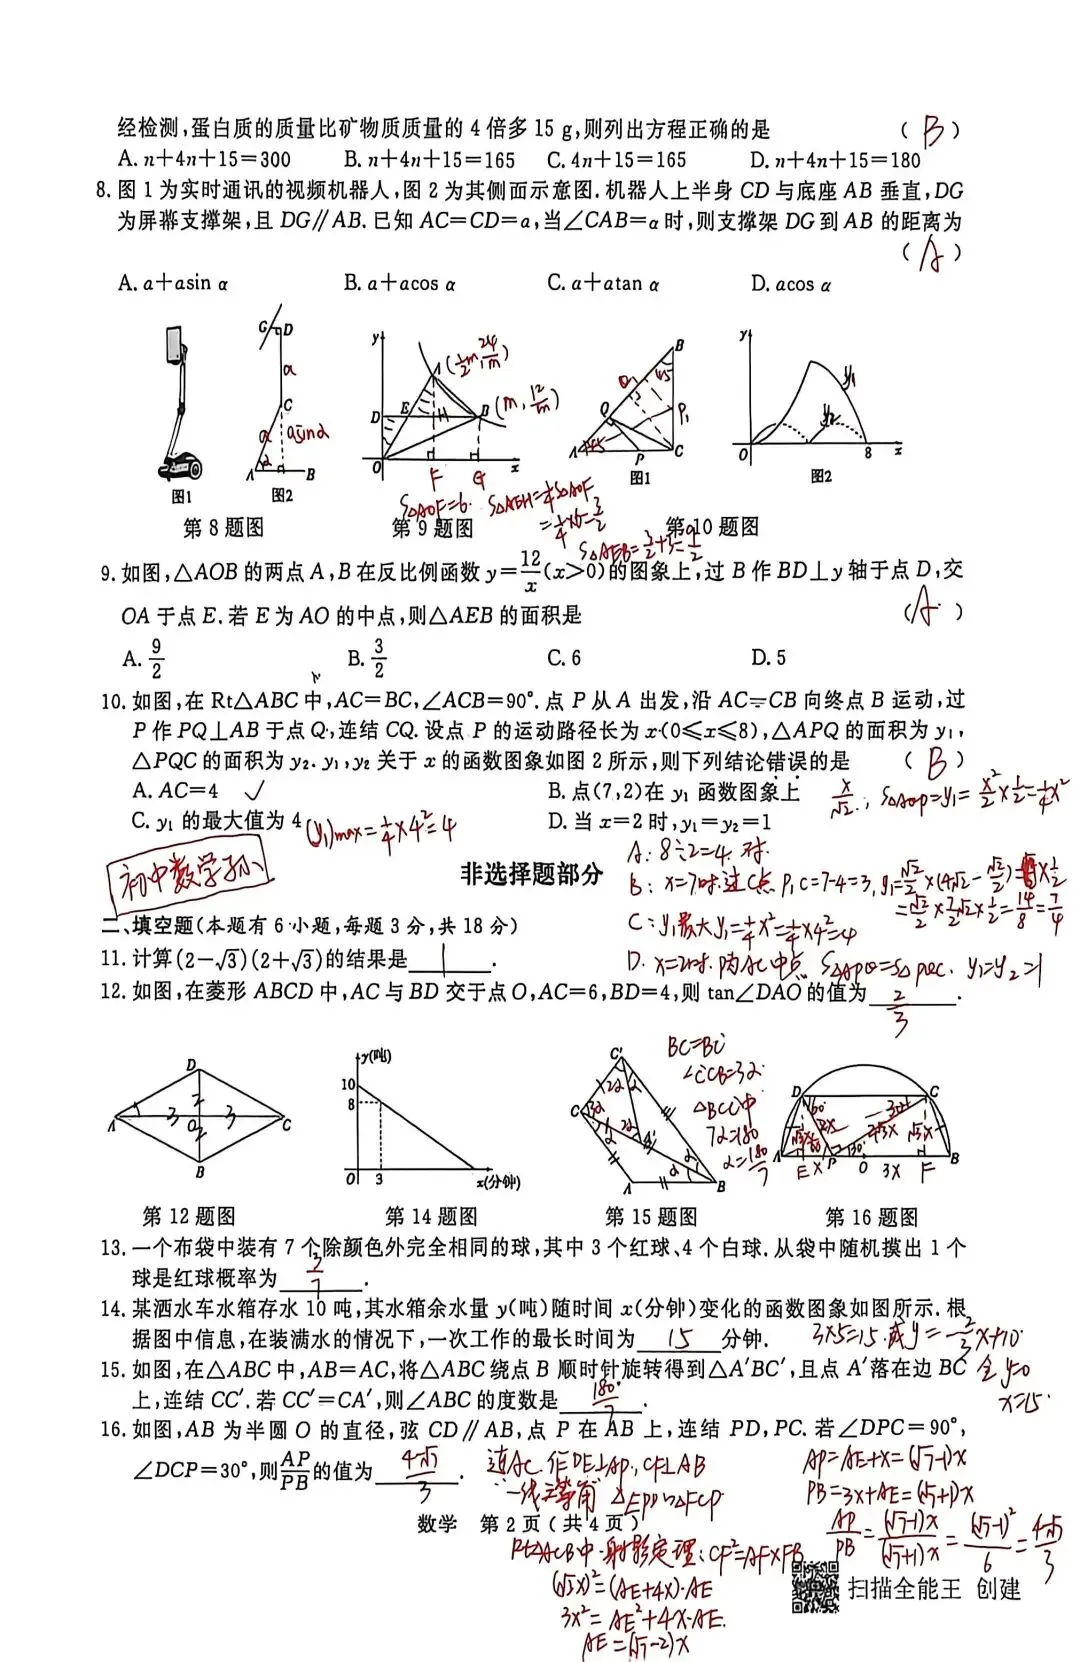 经检测,蛋白质的质量比矿物质质量的 4 倍多 15 g,则列出方程正确的是 ( B )
A. n+4n+15=300 B. n+4n+15=165 C. 4n+15=165 D. n+4n+15=180
8. 图 1 为实时通讯的视频机器人,图 2 为其侧面示意图.机器人上半身 CD 与底座 AB 垂直,DG
为屏幕支撑架,且 DG∥AB.已知 AC=CD=a,当∠CAB=α 时,则支撑架 DG 到 AB 的距离为
( A )
A. a+asin α B. a+acos α C. a+atan α D. acos α
G D
a
C
a asinα
α
A B
图1 图2
第 8 题图
y
A (½m, 24/m)
D E H B (m, 12/m)
O F G x
S△AOF=6. S△AEH=¼S△AOF
=¼×6=3/2
S△AEB=3/2+3=9/2
第 9 题图
B
45
Q P₁
A 45 P C
图1
y
y₁
y₂
O 8 x
图2
第 10 题图
9. 如图,△AOB 的两点 A,B 在反比例函数 y=12/x(x>0)的图象上,过 B 作 BD⊥y 轴于点 D,交
OA 于点 E.若 E 为 AO 的中点,则△AEB 的面积是 ( A )
A. 9/2 B. 3/2 C. 6 D. 5
10. 如图,在 Rt△ABC 中,AC=BC,∠ACB=90°.点 P 从 A 出发,沿 AC—CB 向终点 B 运动,过
P 作 PQ⊥AB 于点 Q,连结 CQ.设点 P 的运动路径长为 x(0≤x≤8),△APQ 的面积为 y₁,
△PQC 的面积为 y₂.y₁,y₂ 关于 x 的函数图象如图 2 所示,则下列结论错误的是 ( B )
A. AC=4 ✓ B. 点(7,2)在 y₁ 函数图象上 x/√2, S△AQP=y₁=x²/2×½=¼x²
C. y₁ 的最大值为 4 (y₁)max=¼×4²=4 D. 当 x=2 时,y₁=y₂=1
A: 8÷2=4. 对.
初中数学孙
非选择题部分
B: x=7时.过C点 P,C=7-4=3, y₁=√2/2×(4√2-√2/2)×½
=√2/2×7/2√2×½=14/8=7/4
二、填空题(本题有 6 小题,每题 3 分,共 18 分)
C: y₁最大 y₁=¼x²=¼×4²=4
11. 计算(2-√3)(2+√3)的结果是 1 .
D. x=2时. 为AC中点 S△APQ=S△PQC. y₁=y₂=1
12. 如图,在菱形 ABCD 中,AC 与 BD 交于点 O,AC=6,BD=4,则 tan∠DAO 的值为 2/3 .
D
2
A 3 O 3 C
2
B
第 12 题图
y(吨)
10
8
O 3 x(分钟)
第 14 题图
C'
2α α
C 3α
α 2α A'
A B
BC=BC'
∠C'CB=3α
△BCC'中
7α=180
α=180/7
第 15 题图
D C
60 30
2x 2√3x
√3x √3x
30
A E x P O 3x F B
第 16 题图
13. 一个布袋中装有 7 个除颜色外完全相同的球,其中 3 个红球、4 个白球.从袋中随机摸出 1 个
球是红球概率为 3/7 .
14. 某洒水车水箱存水 10 吨,其水箱余水量 y(吨)随时间 x(分钟)变化的函数图象如图所示.根
据图中信息,在装满水的情况下,一次工作的最长时间为 15 分钟. 3×5=15.或y=-2/3x+10
15. 如图,在△ABC 中,AB=AC,将△ABC 绕点 B 顺时针旋转得到△A'BC',且点 A'落在边 BC 令y=0
上,连结 CC'.若 CC'=CA',则∠ABC 的度数是 180°/7 . x=15.
16. 如图,AB 为半圆 O 的直径,弦 CD∥AB,点 P 在 AB 上,连结 PD,PC.若∠DPC=90°,
∠DCP=30°,则AP/PB的值为 4-√7/3 .
连AC.作DE⊥AP, CF⊥AB
"一线三等角" △EPD∽△FCP
AP=AE+x=(√7-1)x
PB=3x+AE=(√7+1)x
AP/PB=(√7-1)x/(√7+1)x=(√7-1)²/6=4-√7/3
数学 第 2 页 ( 共 4 页 )
Rt△ACB中.射影定理:CF²=AF×FB
(√3x)²=(AE+4x)·AE
3x²=AE²+4x·AE.
AE=(√7-2)x
扫描全能王 创建